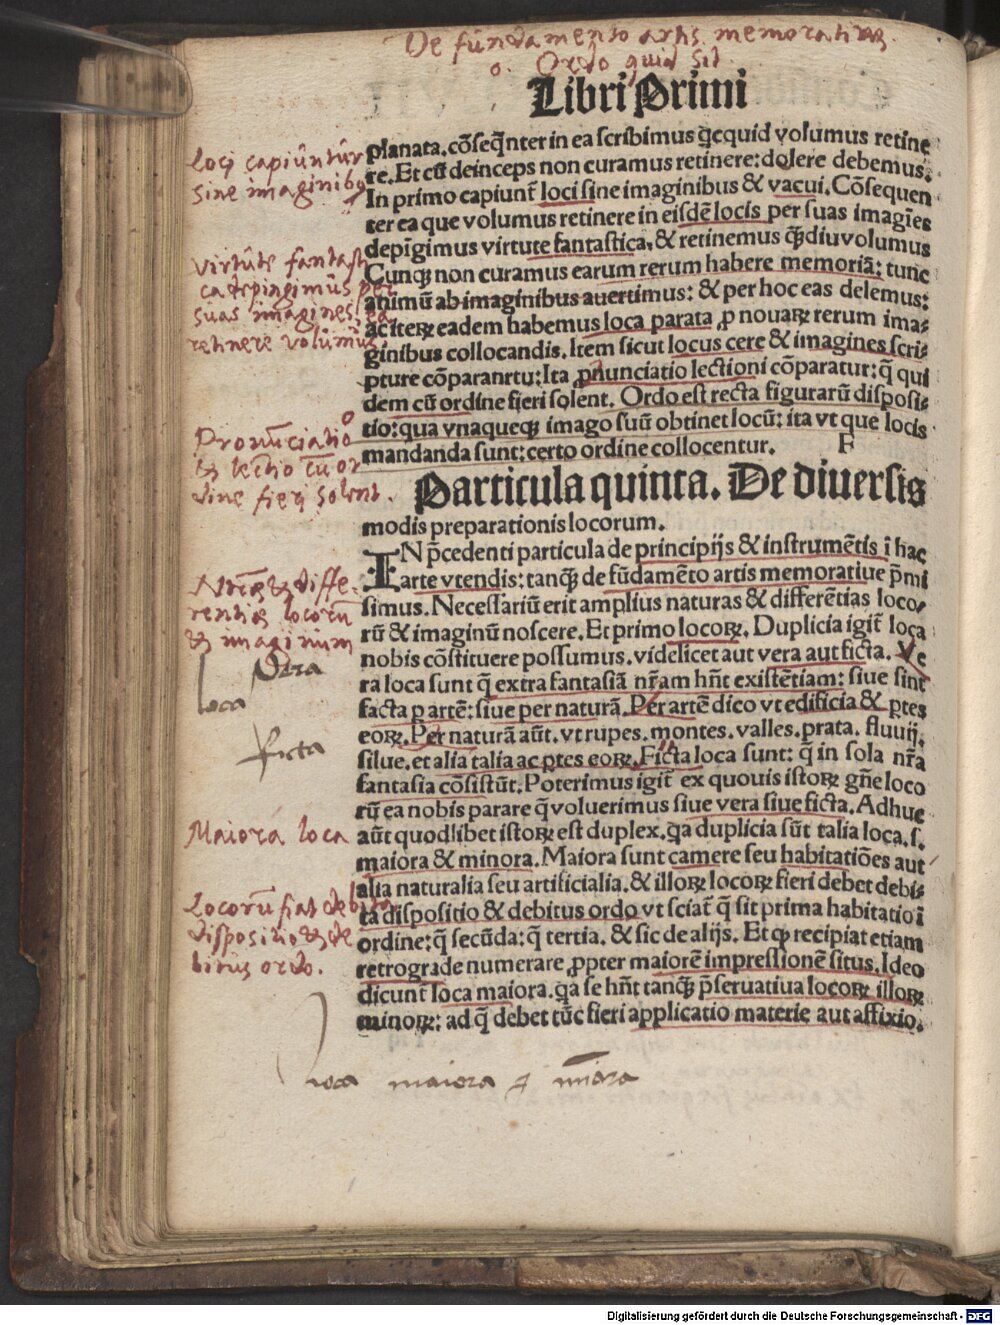 De fundamento artis memorative
o. Ordo quid sit
Libri Primi
planata. cõseq̃nter in ea scribimus q̃cquid volumus retine
re. Et cũ deinceps non curamus retinere: dolere debemus.
In primo capiunt̃ loci sine imaginibus & vacui. Cõsequen
ter ea que volumus retinere in eisdẽ locis per suas imagĩes
depĩgimus virtute fantastica, & retinemus q̃ꝫdiu volumus
Cunqꝫ non curamus earum rerum habere memoriã: tunc
animũ ab imaginibus auertimus: & per hoc eas delemus:
ac iteꝝ eadem habemus loca parata ꝓ nouaꝝ rerum ima⸗
ginibus collocandis. Item sicut locus cere & imagines scri⸗
pture cõparanrtu: Ita ꝓnunciatio lectioni cõparatur: q̃ qui
dem cũ ordine fieri solent. Ordo est recta figurarũ disposi⸗
tio: qua vnaqueqꝫ imago suũ obtinet locũ: ita vt que locis
mandanda sunt: certo ordine collocentur. F
Particula quinta. De diuersis
modis preparationis locorum.
IN p̃cedenti particula de principijs & instrumẽtis ĩ hac
arte vtendis: tanq̃ꝫ de fũdamẽto artis memoratiue p̃mi
simus. Necessariũ erit amplius naturas & differẽtias loco⸗
rũ & imaginũ noscere. Et primo locoꝝ. Duplicia igit̃ loca
nobis cõstituere possumus. videlicet aut vera aut ficta. Ve
ra loca sunt q̃ extra fantasiã nr̃am hñt existẽtiam: siue sint
facta p artẽ: siue per naturã. Per artẽ dico vt edificia & ptes
eoꝝ. Per naturã aũt. vt rupes. montes. valles. prata. fluuij.
silue. et alia talia ac ptes eoꝝ. Ficta loca sunt: q̃ in sola nr̃a
fantasia cõsistũt. Poterimus igit̃ ex quouis istoꝝ gñe loco
rũ ea nobis parare q̃ voluerimus siue vera siue ficta. Adhuc
aũt quodlibet istoꝝ est duplex. q̃a duplicia sũt talia loca. s.
maiora & minora. Maiora sunt camere seu habitatiões aut
alia naturalia seu artificialia. & illoꝝ locoꝝ fieri debet debi⸗
ta dispositio & debitus ordo vt sciat̃ q̃ sit prima habitatio ĩ
ordine: q̃ secũda: q̃ tertia. & sic de alijs. Et ꝙ recipiat etiam
retrograde numerare ꝓpter maiorẽ impressionẽ situs. Ideo
dicunt̃ loca maiora. q̃a se hñt tanq̃ꝫ p̃seruatiua locoꝝ illoꝝ
minoꝝ: ad q̃ debet tũc fieri applicatio materie aut affixio.
loci capiũntũr
sine imaginibꝫ
Virtũte fantasti
ca depingimũs per
suas imagines ea
retinere volũmũs
Pronũnciatio
et lectio cũ or
dine fieri solent.
Nat̃as et diffe⸗
rentias locorũ
et imaginum
Vera
loca
ficta
Maiora loca
Locorũ fiat debita
dispositio et de
bitus ordo.
loca maiora et minora
Digitalisierung gefördert durch die Deutsche Forschungsgemeinschaft - DFG